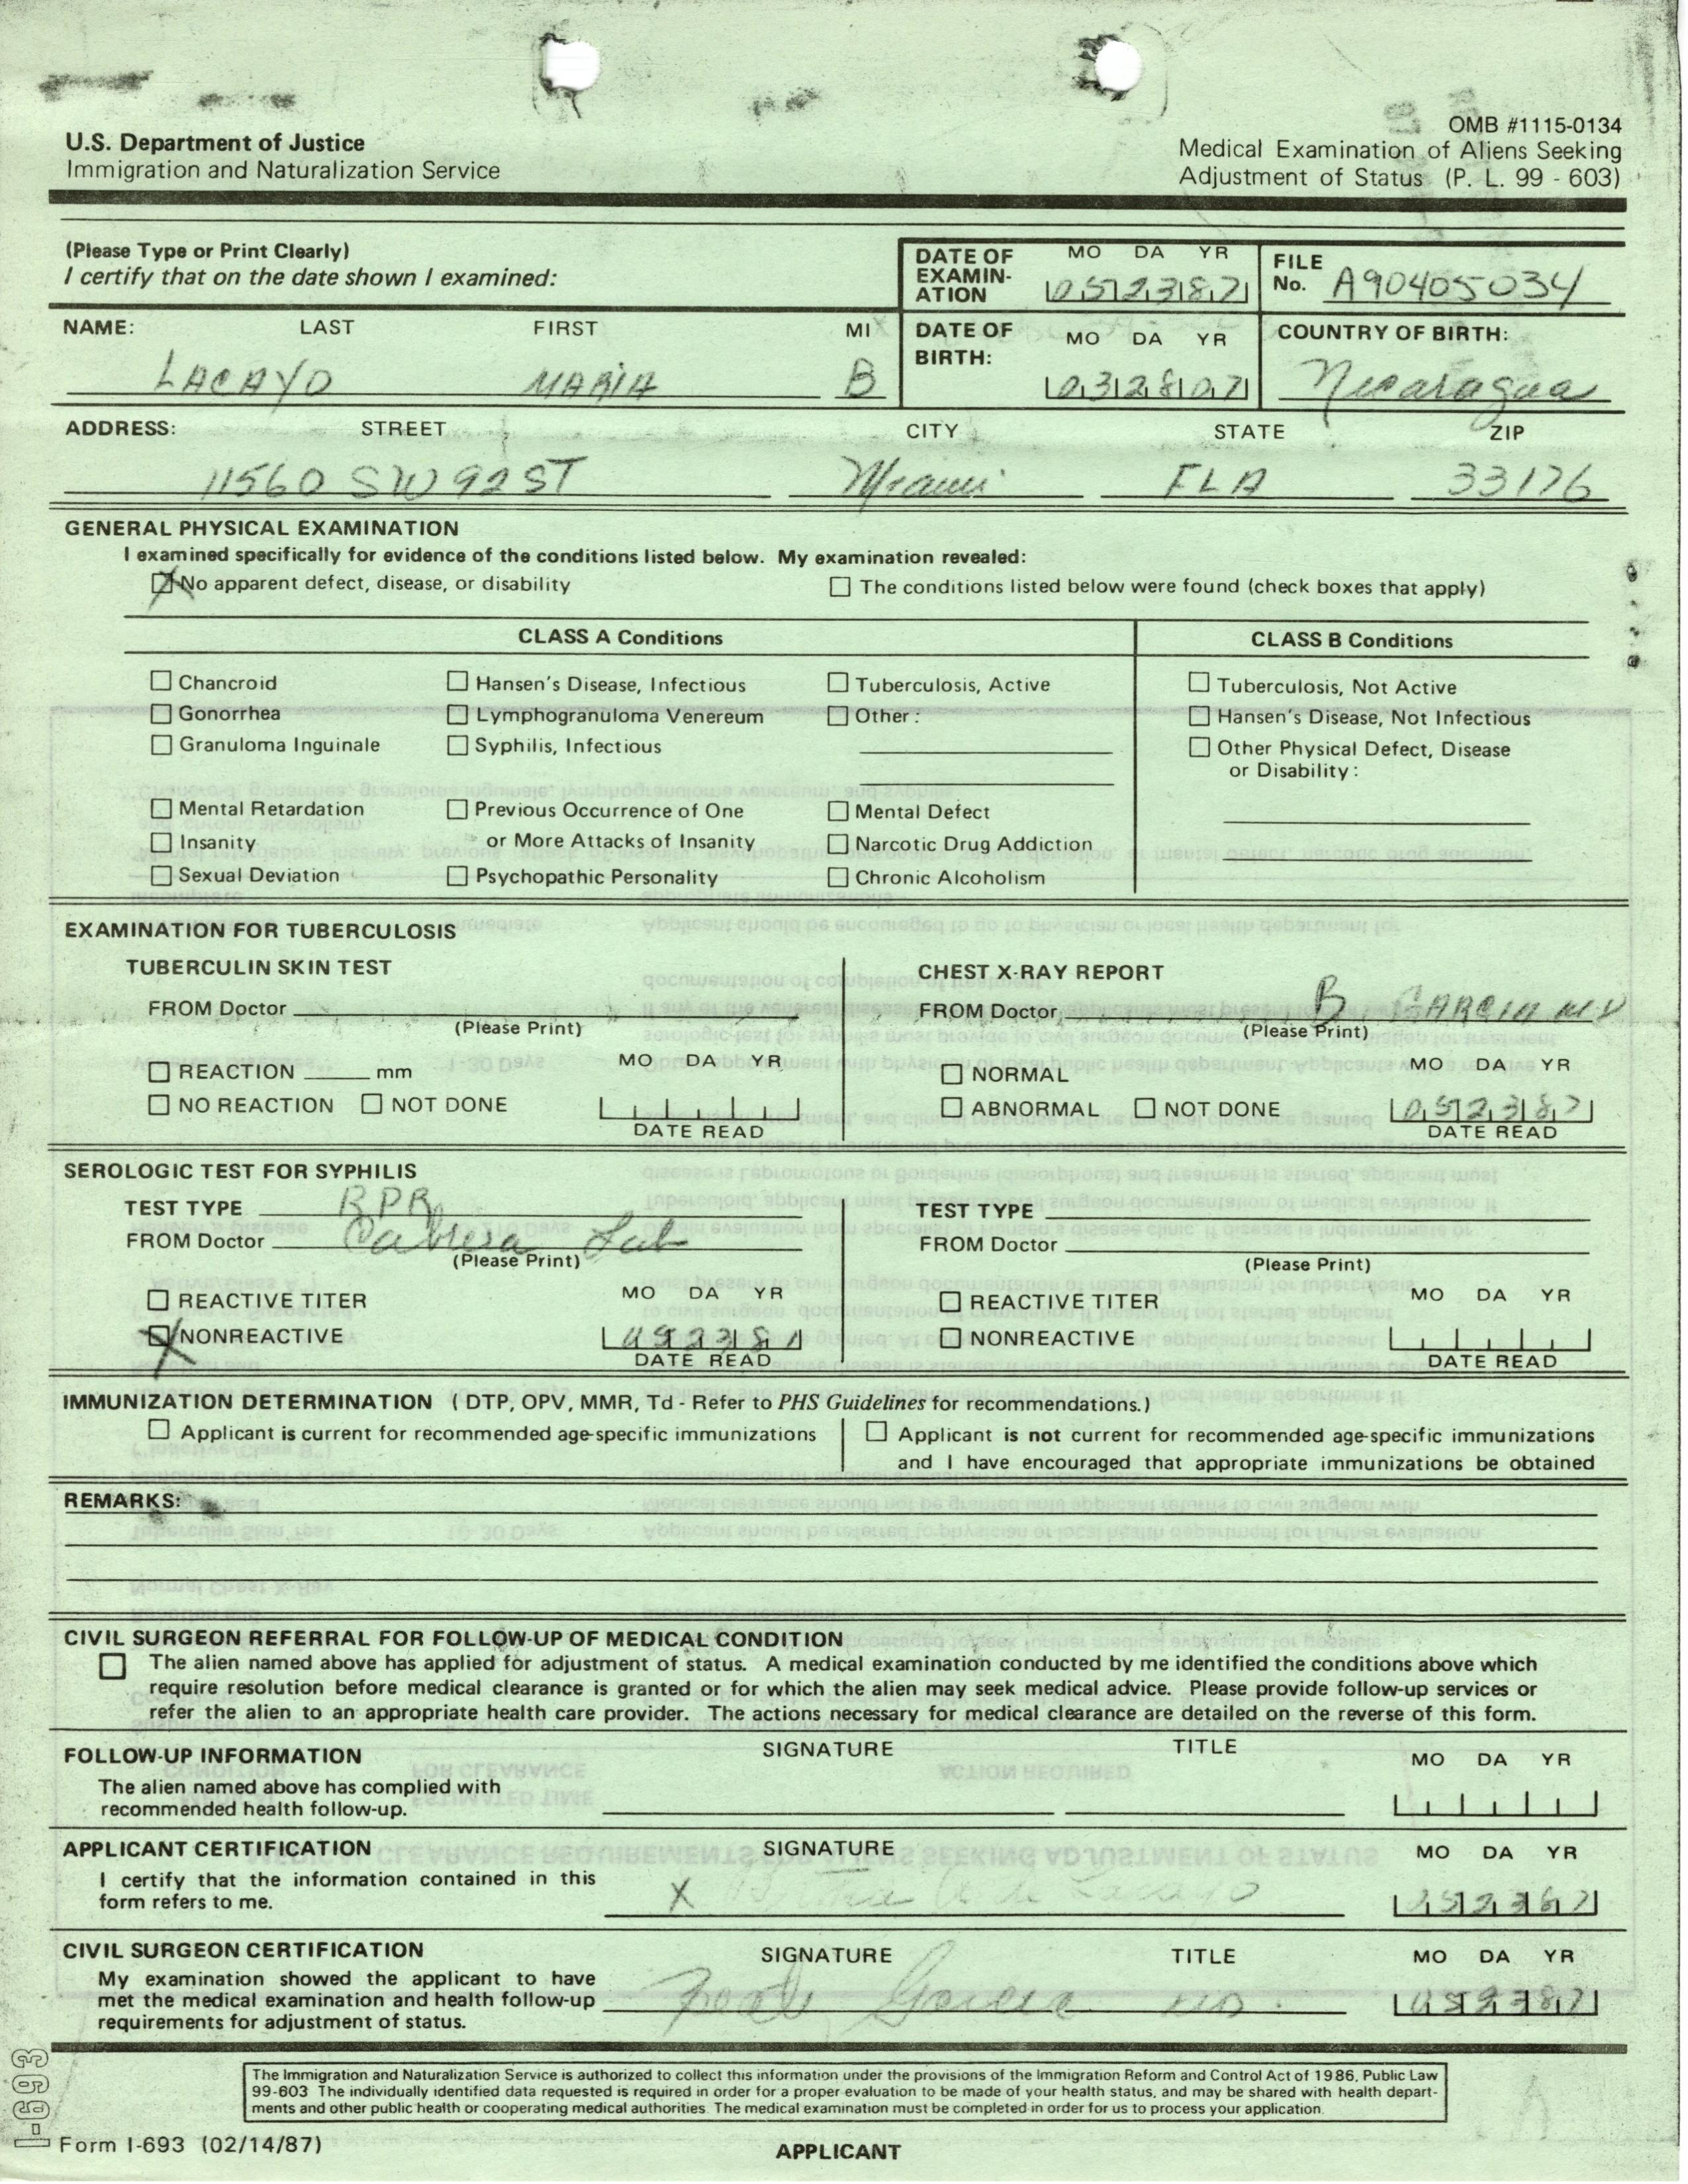 OMB #1115-0134
U.S. Department of Justice
Immigration and Naturalization Service
Medical Examination of Aliens Seeking
Adjustment of Status (P. L. 99 - 603)
(Please Type or Print Clearly)
I certify that on the date shown I examined:
DATE OF EXAMIN- ATION MO DA YR 052387
FILE No. A90405034
NAME: LAST FIRST MI
LACAYO MARIA B
DATE OF BIRTH: MO DA YR 032807
COUNTRY OF BIRTH:
Nicaragua
ADDRESS: STREET CITY STATE ZIP
11560 SW 92 ST Miami FLA 33176
GENERAL PHYSICAL EXAMINATION
I examined specifically for evidence of the conditions listed below. My examination revealed:
No apparent defect, disease, or disability The conditions listed below were found (check boxes that apply)
CLASS A Conditions CLASS B Conditions
Chancroid Hansen's Disease, Infectious Tuberculosis, Active Tuberculosis, Not Active
Gonorrhea Lymphogranuloma Venereum Other: Hansen's Disease, Not Infectious
Granuloma Inguinale Syphilis, Infectious Other Physical Defect, Disease
or Disability:
Mental Retardation Previous Occurrence of One Mental Defect
Insanity or More Attacks of Insanity Narcotic Drug Addiction
Sexual Deviation Psychopathic Personality Chronic Alcoholism
EXAMINATION FOR TUBERCULOSIS
TUBERCULIN SKIN TEST
FROM Doctor
(Please Print)
MO DA YR
REACTION mm
NO REACTION NOT DONE
DATE READ
CHEST X-RAY REPORT
FROM Doctor B GARCIA MD
(Please Print)
MO DA YR
NORMAL
ABNORMAL NOT DONE 052387
DATE READ
SEROLOGIC TEST FOR SYPHILIS
TEST TYPE RPR
FROM Doctor Cabrera Lab
(Please Print)
REACTIVE TITER MO DA YR
NONREACTIVE
DATE READ
TEST TYPE
FROM Doctor
(Please Print)
REACTIVE TITER MO DA YR
NONREACTIVE
DATE READ
IMMUNIZATION DETERMINATION ( DTP, OPV, MMR, Td - Refer to PHS Guidelines for recommendations.)
Applicant is current for recommended age-specific immunizations
Applicant is not current for recommended age-specific immunizations
and I have encouraged that appropriate immunizations be obtained
REMARKS:
CIVIL SURGEON REFERRAL FOR FOLLOW-UP OF MEDICAL CONDITION
The alien named above has applied for adjustment of status. A medical examination conducted by me identified the conditions above which
require resolution before medical clearance is granted or for which the alien may seek medical advice. Please provide follow-up services or
refer the alien to an appropriate health care provider. The actions necessary for medical clearance are detailed on the reverse of this form.
FOLLOW-UP INFORMATION SIGNATURE TITLE MO DA YR
The alien named above has complied with
recommended health follow-up.
APPLICANT CERTIFICATION SIGNATURE MO DA YR
I certify that the information contained in this
form refers to me.
X de Lacayo
CIVIL SURGEON CERTIFICATION SIGNATURE TITLE MO DA YR
My examination showed the applicant to have
met the medical examination and health follow-up
requirements for adjustment of status.
Garcia MD. 052387
The Immigration and Naturalization Service is authorized to collect this information under the provisions of the Immigration Reform and Control Act of 1986, Public Law
99-603 The individually identified data requested is required in order for a proper evaluation to be made of your health status, and may be shared with health depart-
ments and other public health or cooperating medical authorities. The medical examination must be completed in order for us to process your application.
I-693
Form I-693 (02/14/87)
APPLICANT